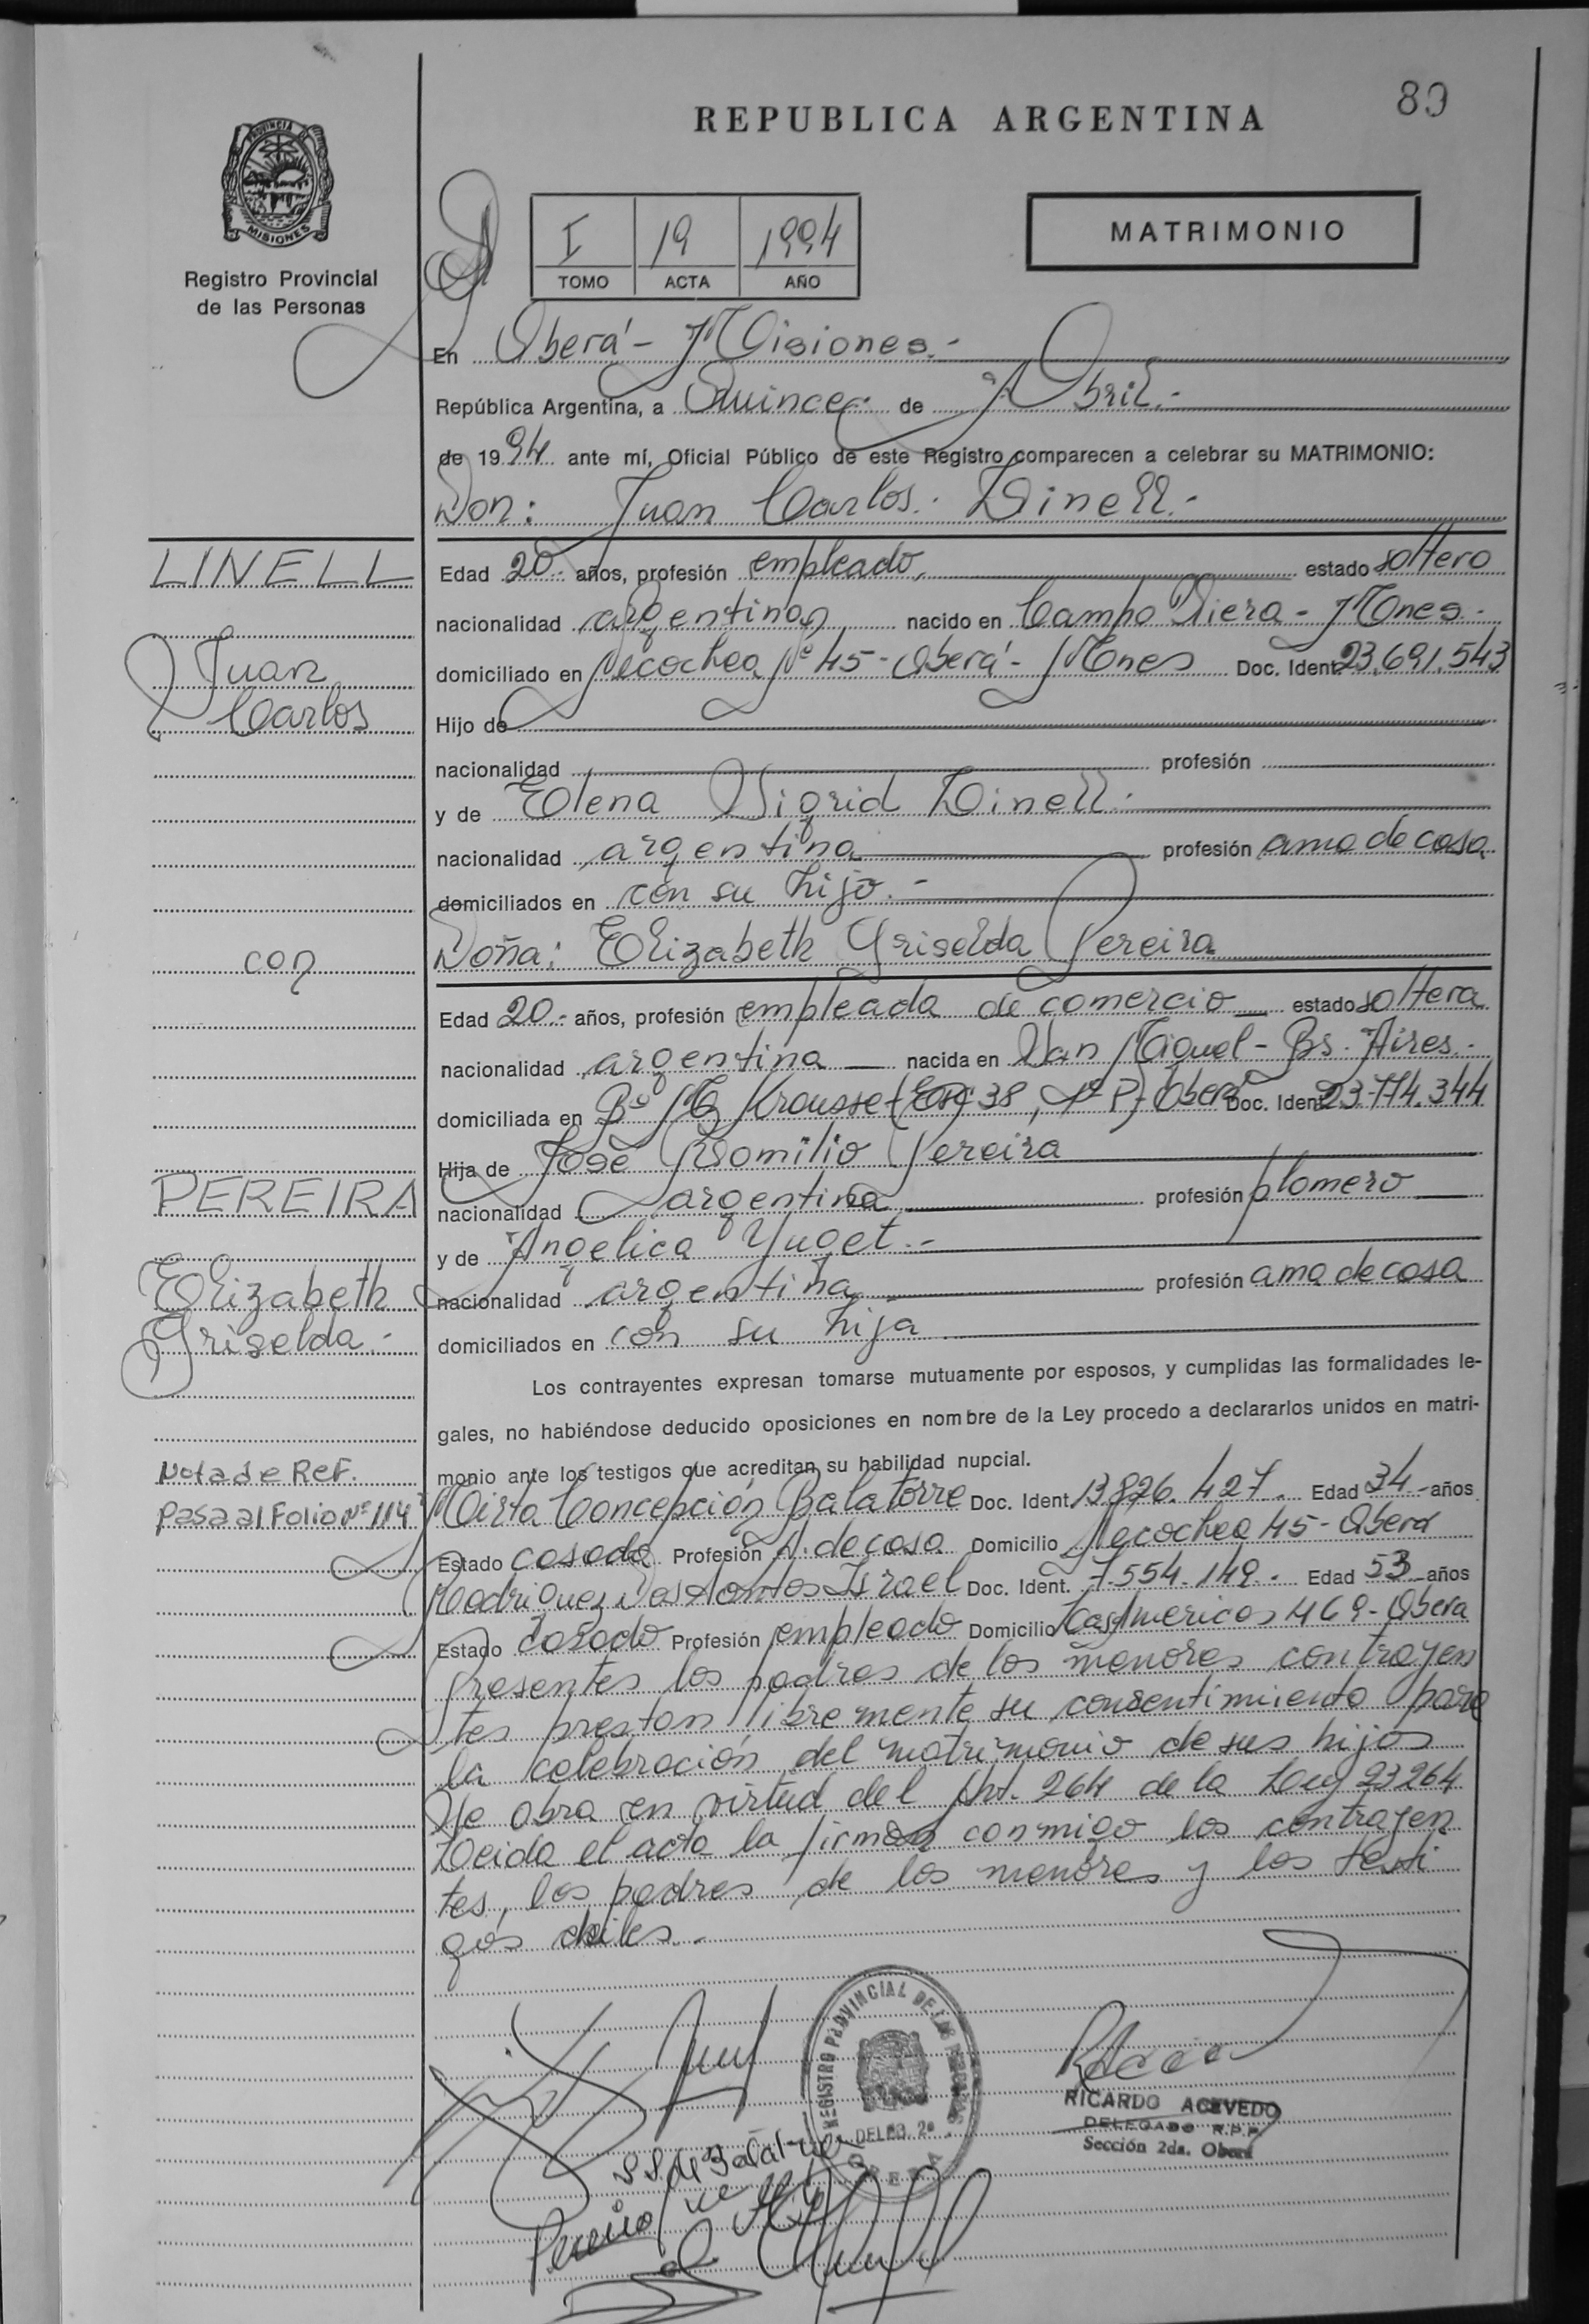 89
REPUBLICA ARGENTINA
PROVINCIA DE
MISIONES
Registro Provincial
de las Personas
I 19 1994
TOMO ACTA AÑO
MATRIMONIO
En Oberá - Misiones.-
República Argentina, a Quince.- de Abril.-
de 1994 ante mí, Oficial Público de este Registro comparecen a celebrar su MATRIMONIO:
Don: Juan Carlos Linell.-
LINELL
Juan
Carlos
Edad 20.- años, profesión empleado, estado soltero
nacionalidad argentina nacido en Campo Viera - Mnes.-
domiciliado en Necochea Nº 45 - Oberá - Mnes Doc. Ident. 23.691.543
Hijo de
nacionalidad profesión
y de Elena Sigrid Linell.-
nacionalidad argentina profesión ama de casa
domiciliados en con su hijo.-
con
Doña: Elizabeth Griselda Pereira
Edad 20.- años, profesión empleada de comercio estado soltera
nacionalidad argentina nacida en San Miguel - Bs. Aires.-
domiciliada en Bº Krausse (Esc 38, Oberá Doc. Ident. 23.774.344
Hija de José Romilio Pereira
PEREIRA
nacionalidad argentina profesión plomero
y de Angelica Yuget.-
Elizabeth
Griselda.-
nacionalidad argentina profesión ama de casa
domiciliados en con su hija
Los contrayentes expresan tomarse mutuamente por esposos, y cumplidas las formalidades le-
gales, no habiéndose deducido oposiciones en nombre de la Ley procedo a declararlos unidos en matri-
monio ante los testigos que acreditan su habilidad nupcial.
Nota de Ref.
Pasa al Folio Nº 114
Mirta Concepción Balatorre Doc. Ident. 13.826.427.- Edad 34 - años
Estado casada Profesión A. de casa Domicilio Necochea 45 - Oberá
Rodriguez Dos Santos Israel Doc. Ident. 7.554.149.- Edad 53 - años
Estado casado Profesión empleado Domicilio Las Americas 469 - Oberá
Presentes los padres de los menores contrayen
tes prestan libremente su consentimiento para
la celebración del matrimonio de sus hijos
Se obra en virtud del Art. 264 de la Ley 23264
Leida el acta la firman conmigo los contrayen
tes, los padres de los menores y los testi
gos abiles.-
REGISTRO PROVINCIAL DE LAS PERSONAS
DELEG. 2ª
OBERA
RICARDO ACEVEDO
DELEGADO R.P.P.
Sección 2da. Oberá
Pereira